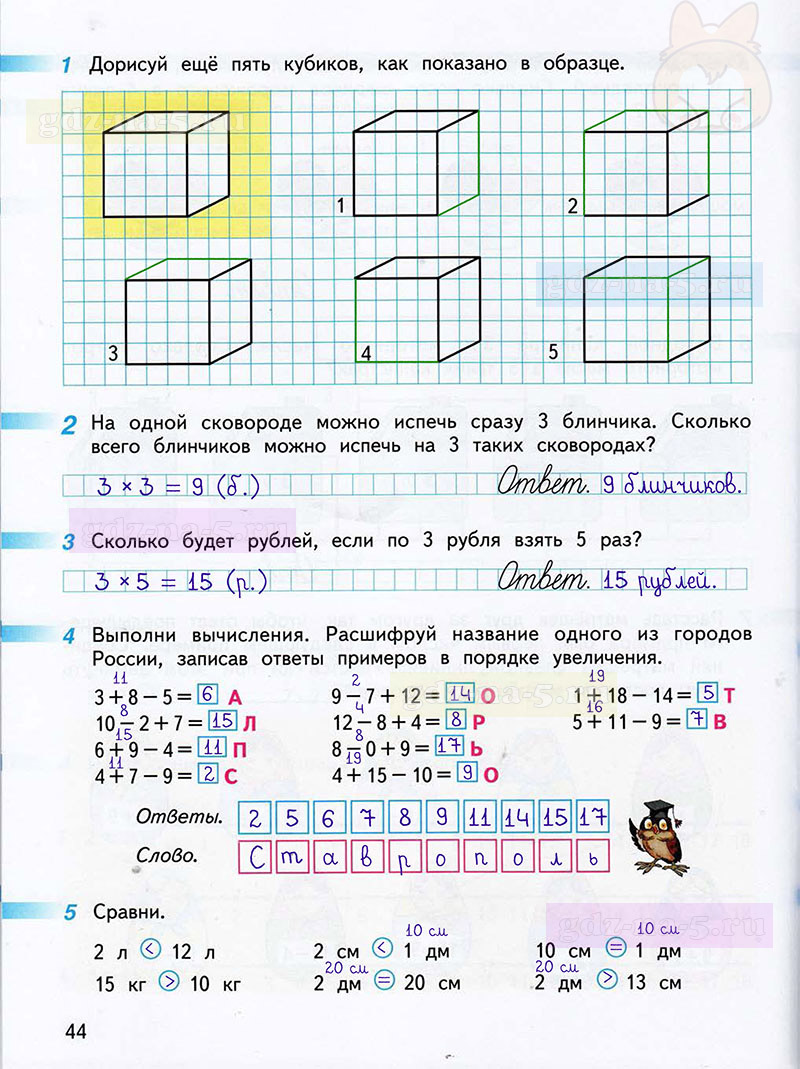 1 Дорисуй ещё пять кубиков, как показано в образце.
gdz-na-5.ru
1
2
gdz-na-5.ru
3
4
5
2 На одной сковороде можно испечь сразу 3 блинчика. Сколько
всего блинчиков можно испечь на 3 таких сковородах?
3 × 3 = 9 (б.) Ответ. 9 блинчиков.
gdz-na-5.ru
3 Сколько будет рублей, если по 3 рубля взять 5 раз?
3 × 5 = 15 (р.) Ответ. 15 рублей.
4 Выполни вычисления. Расшифруй название одного из городов
России, записав ответы примеров в порядке увеличения.
gdz-na-5.ru
11 2 19
3 + 8 − 5 = 6 А 9 − 7 + 12 = 14 О 1 + 18 − 14 = 5 Т
8 4 16
10 − 2 + 7 = 15 Л 12 − 8 + 4 = 8 Р 5 + 11 − 9 = 7 В
15 8
6 + 9 − 4 = 11 П 8 − 0 + 9 = 17 Ь
11 19
4 + 7 − 9 = 2 С 4 + 15 − 10 = 9 О
Ответы. 2 5 6 7 8 9 11 14 15 17
Слово. С т а в р о п о л ь
5 Сравни.
gdz-na-5.ru
10 см 10 см
2 л < 12 л 2 см < 1 дм 10 см = 1 дм
20 см 20 см
15 кг > 10 кг 2 дм = 20 см 2 дм > 13 см
44